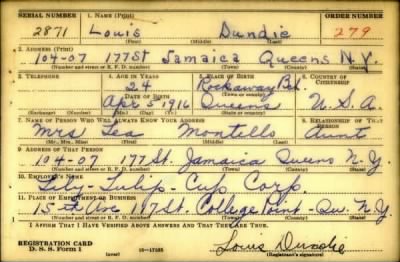 SERIAL NUMBER 1. NAME (Print) ORDER NUMBER
2871 Louis Dundie 279
(First) (Middle) (Last)
2. ADDRESS (Print)
104-07 177 St Jamaica Queens N.Y.
(Number and street or R. F. D. number) (Town) (County) (State)
3. TELEPHONE 4. AGE IN YEARS 5. PLACE OF BIRTH 6. COUNTRY OF CITIZENSHIP
24 Rockaway Bch.
DATE OF BIRTH (Town or county)
Apr 5 1916 Queens U.S.A
(Exchange) (Number) (Mo.) (Day) (Yr.) (State or country)
7. NAME OF PERSON WHO WILL ALWAYS KNOW YOUR ADDRESS 8. RELATIONSHIP OF THAT PERSON
Mrs Lea Montello Aunt
(Mr., Mrs., Miss) (First) (Middle) (Last)
9. ADDRESS OF THAT PERSON
104-07 177 St. Jamaica Queens N.Y.
(Number and street or R. F. D. number) (Town) (County) (State)
10. EMPLOYER'S NAME
Lily-Tulip-Cup Corp.
11. PLACE OF EMPLOYMENT OR BUSINESS
15th Ave College Point - Qu. N.Y.
(Number and street or R. F. D. number) (Town) (County) (State)
I AFFIRM THAT I HAVE VERIFIED ABOVE ANSWERS AND THAT THEY ARE TRUE.
REGISTRATION CARD Louis Dundie
D. S. S. Form 1 (over) 16-17105 (Registrant's signature)